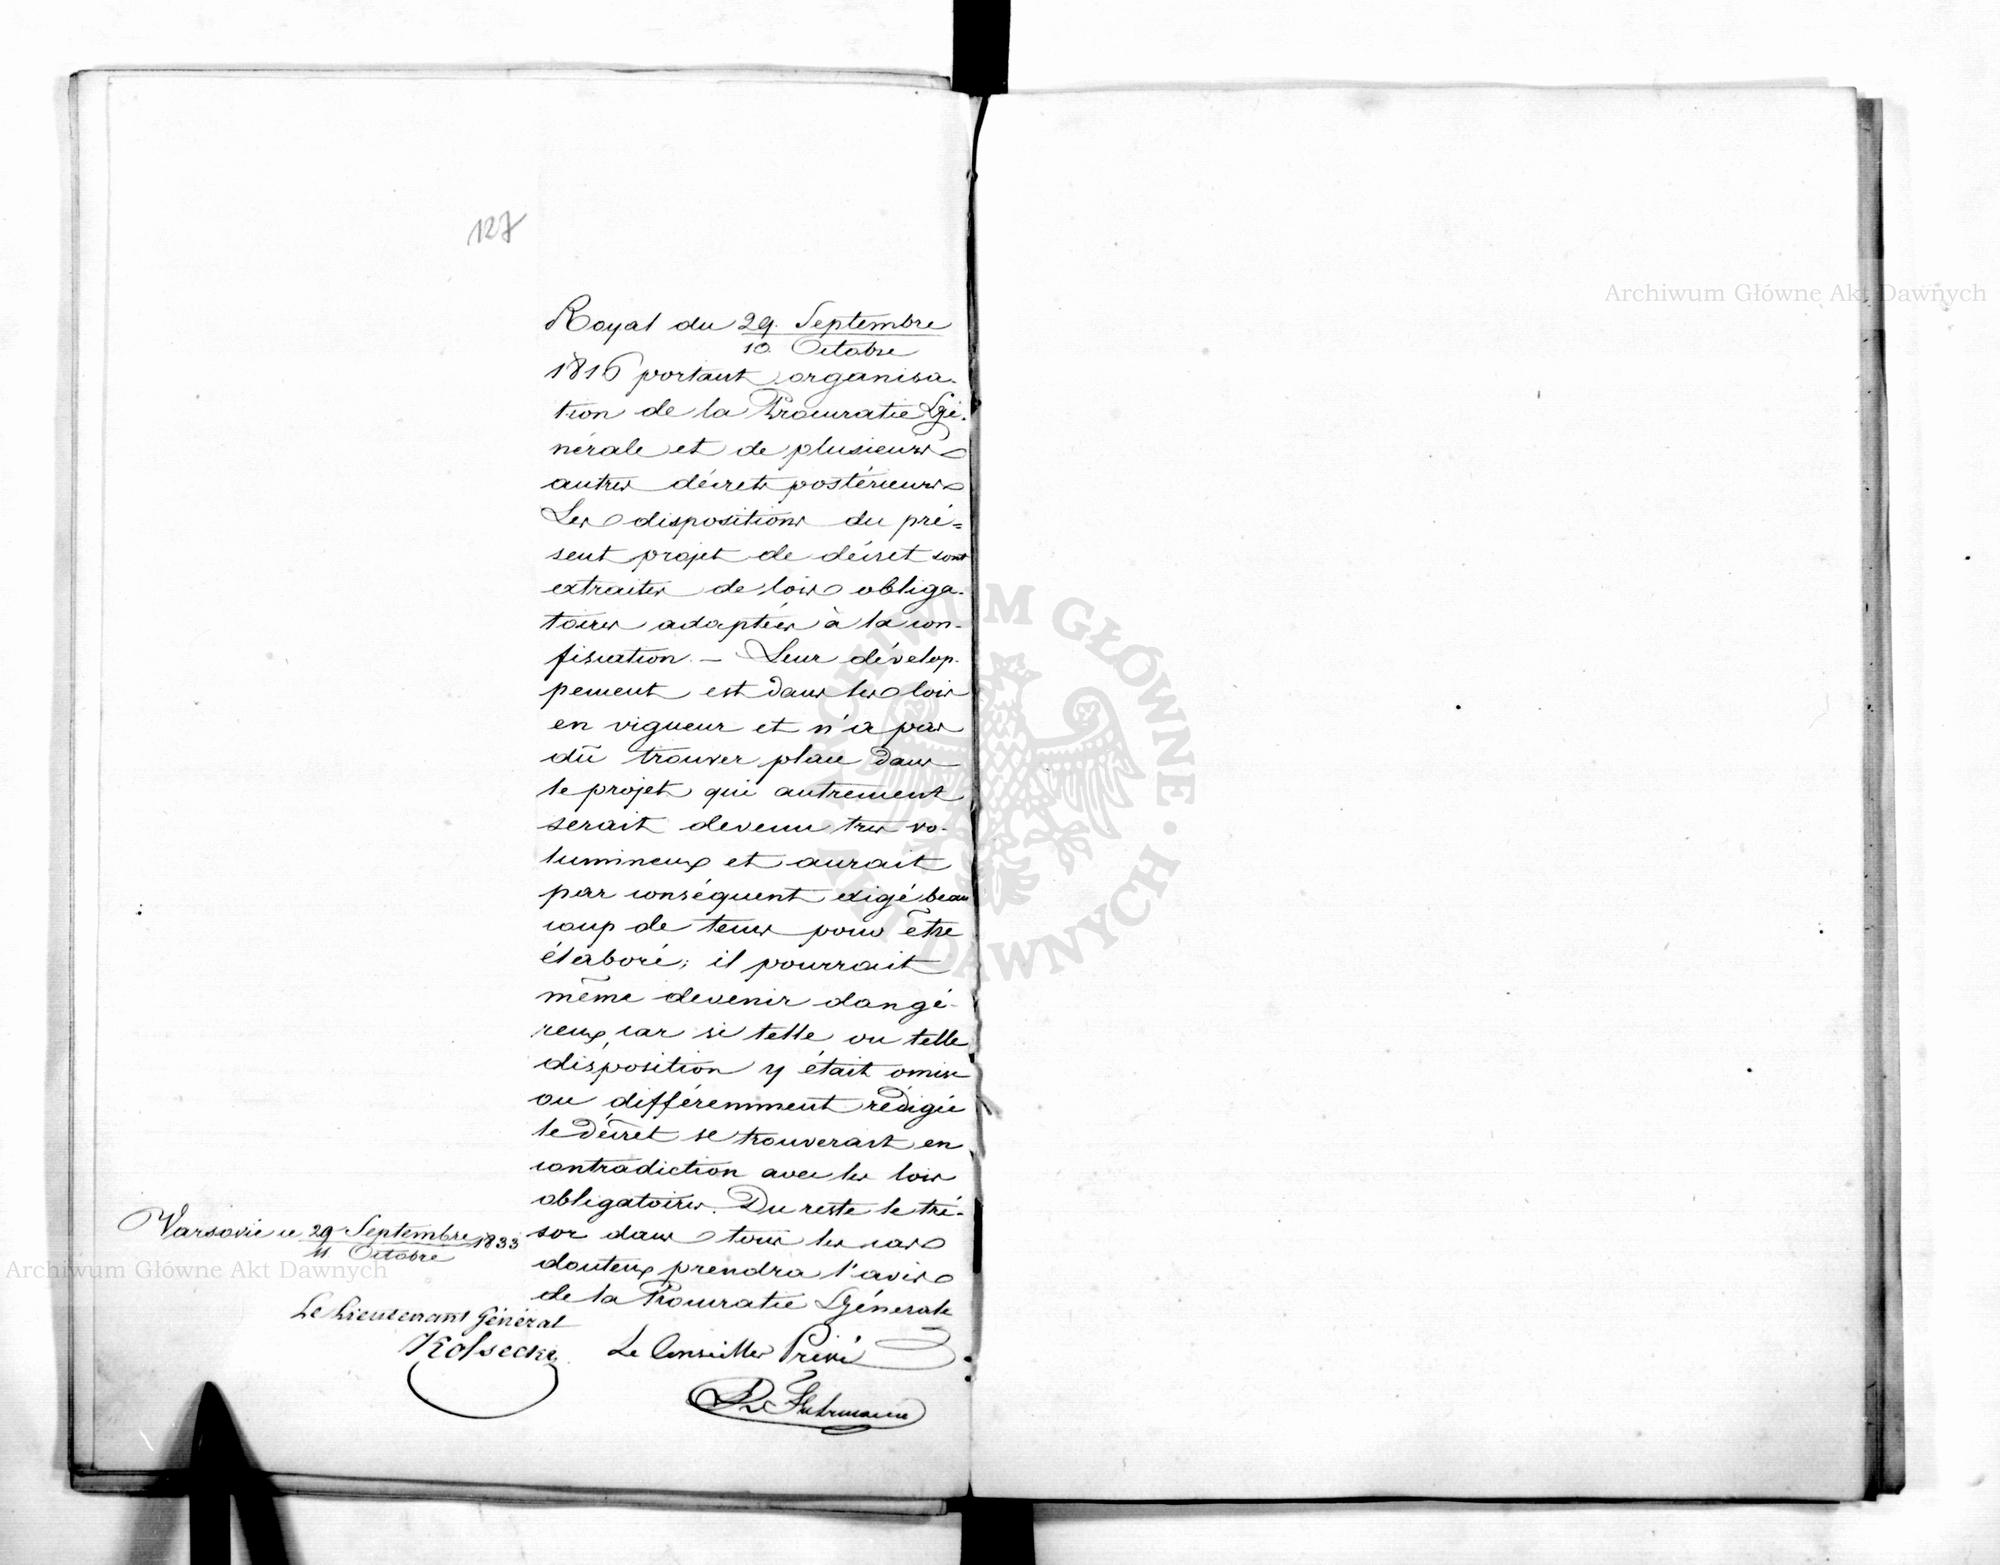 127
Royal du 29. Septembre
10. Octobre
1816 portant organisa-
tion de la Procuratie Gé-
nérale et de plusieurs
autres décrets postérieurs
Les dispositions du pré=
sent projet de décret sont
extraites de lois obliga-
toires adaptées à la con-
fiscation. — Leur dévelop-
pement est dans les lois
en vigueur et n'a pas
dû trouver place dans
le projet qui autrement
serait devenu tres vo-
lumineux et aurait
par conséquent exigé beau
coup de tems pour être
élaboré; il pourrait
même devenir dangé-
reux, car si telle ou telle
disposition y était omise
ou différemment rédigée
le décret se trouverait en
contradiction avec les lois
obligatoires. Du reste le tré-
sor dans tous les cas
douteux prendra l'avis
de la Procuratie Générale
Varsovie ce 29 Septembre 1833
11 Octobre
Le Lieutenant Général
Le Conseiller Privé
Fuhrmann
Archiwum Główne Akt Dawnych
Archiwum Główne Akt Dawnych
ARCHIWUM GŁÓWNE AKT DAWNYCH